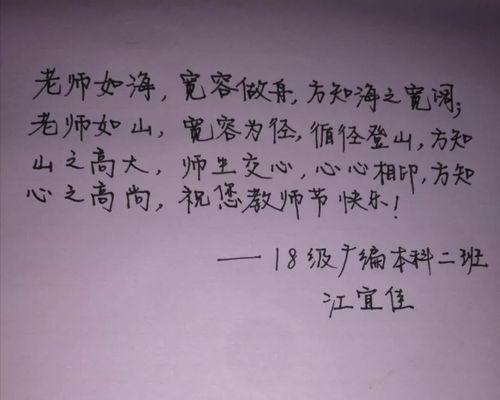 老师如海，宽容做舟，方知海之宽阔；
老师如山，宽容为径，循径登山，方知
山之高大，师生交心，心心相印，方知
心之高尚，祝您教师节快乐！
——18级广编本科二班
江宜佳